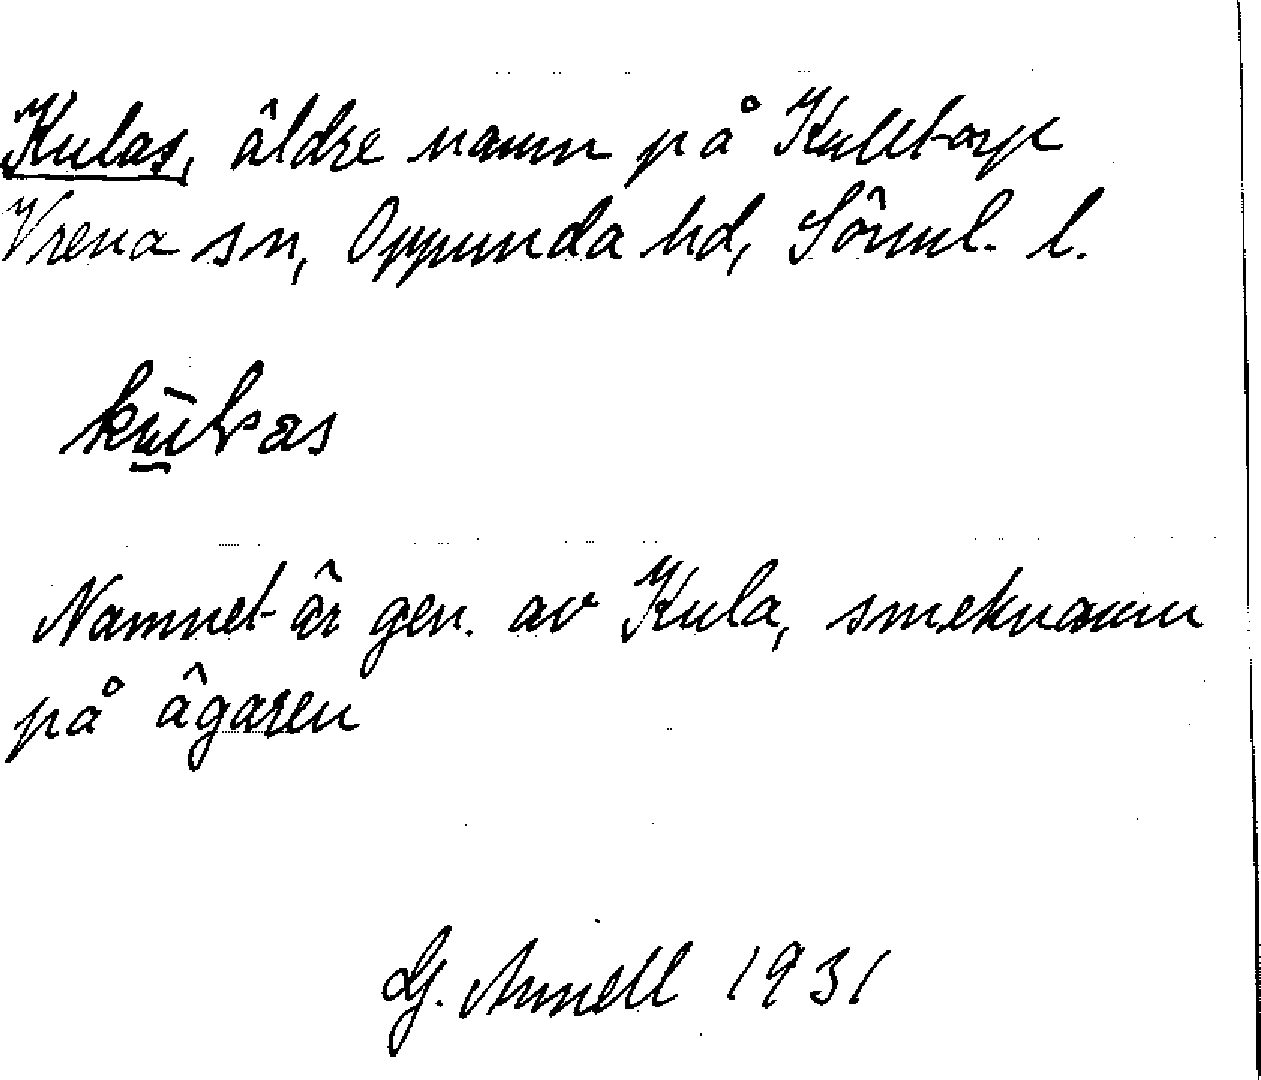 Kulas, äldre namn på Kulltorp
Vrena sn, Oppunda hd, Söml. l.
Namnet är gen. av Kula, smeknamn
på ägaren
G. Annell 1931